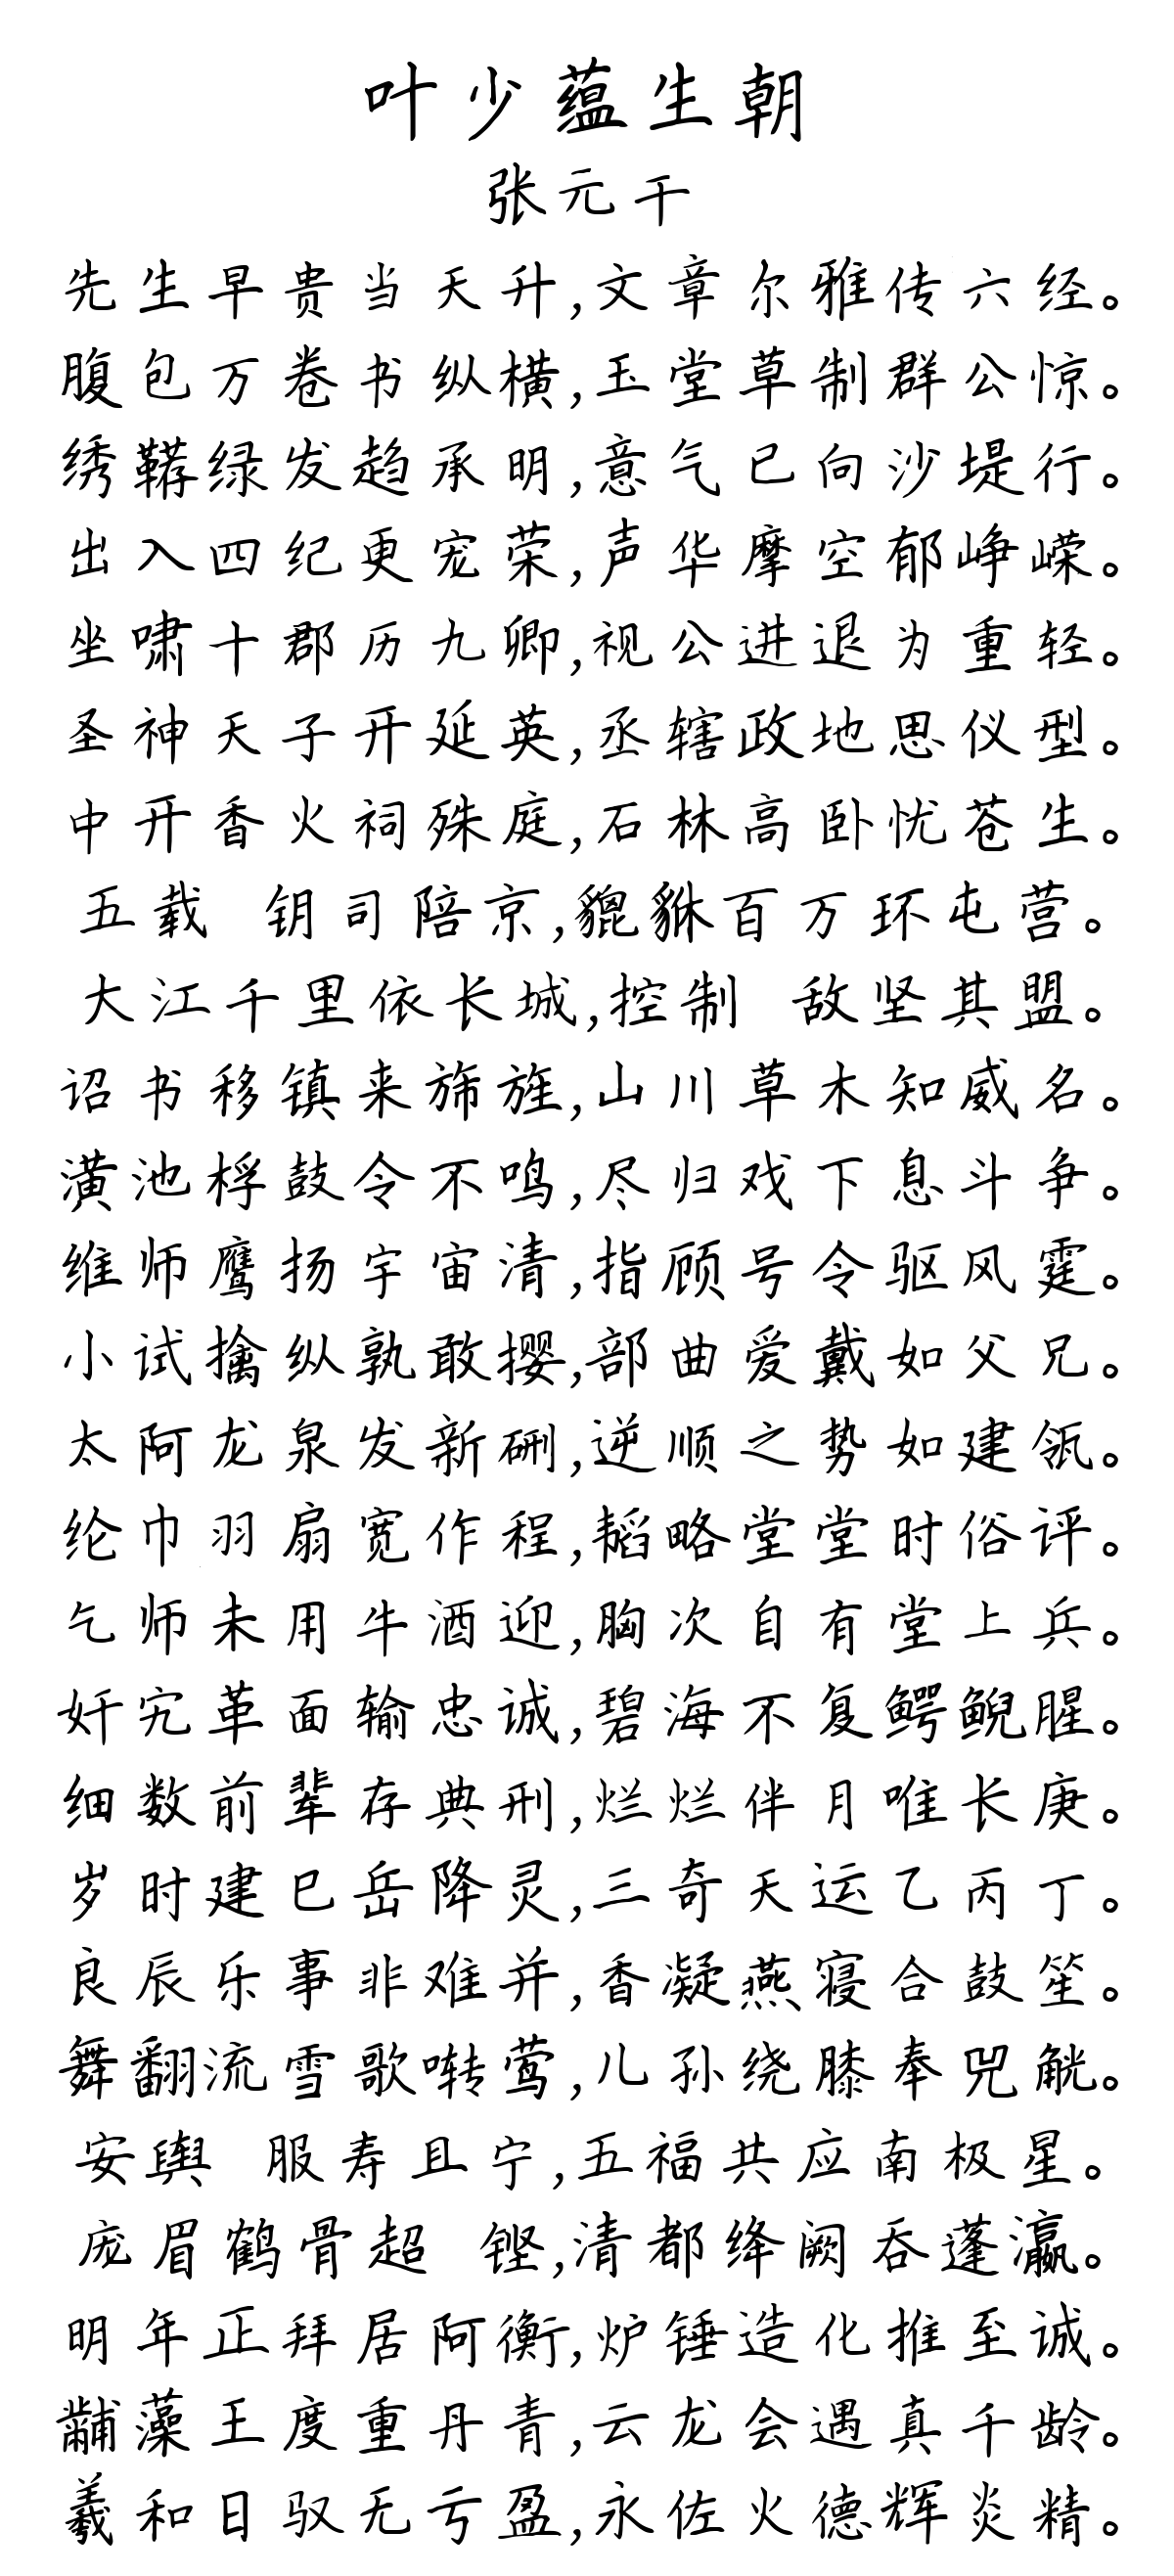 叶少蕴生朝
张元干
先生早贵当天升,文章尔雅传六经。
腹包万卷书纵横,玉堂草制群公惊。
绣鞯绿发趋承明,意气已向沙堤行。
出入四纪更宠荣,声华摩空郁峥嵘。
坐啸十郡历九卿,视公进退为重轻。
圣神天子开延英,丞辖政地思仪型。
中开香火祠殊庭,石林高卧忧苍生。
五载 钥司陪京,貔貅百万环屯营。
大江千里依长城,控制 敌坚其盟。
诏书移镇来旆旌,山川草木知威名。
潢池桴鼓令不鸣,尽归戏下息斗争。
维师鹰扬宇宙清,指顾号令驱风霆。
小试擒纵孰敢撄,部曲爱戴如父兄。
太阿龙泉发新硎,逆顺之势如建瓴。
纶巾羽扇宽作程,韬略堂堂时俗评。
乞师未用牛酒迎,胸次自有堂上兵。
奸宄革面输忠诚,碧海不复鳄鲵腥。
细数前辈存典刑,烂烂伴月唯长庚。
岁时建巳岳降灵,三奇天运乙丙丁。
良辰乐事非难并,香凝燕寝合鼓笙。
舞翻流雪歌啭莺,儿孙绕膝奉兕觥。
安舆 服寿且宁,五福共应南极星。
庞眉鹤骨超 铿,清都绛阙吞蓬瀛。
明年正拜居阿衡,炉锤造化推至诚。
黼藻王度重丹青,云龙会遇真千龄。
羲和日驭无亏盈,永佐火德辉炎精。